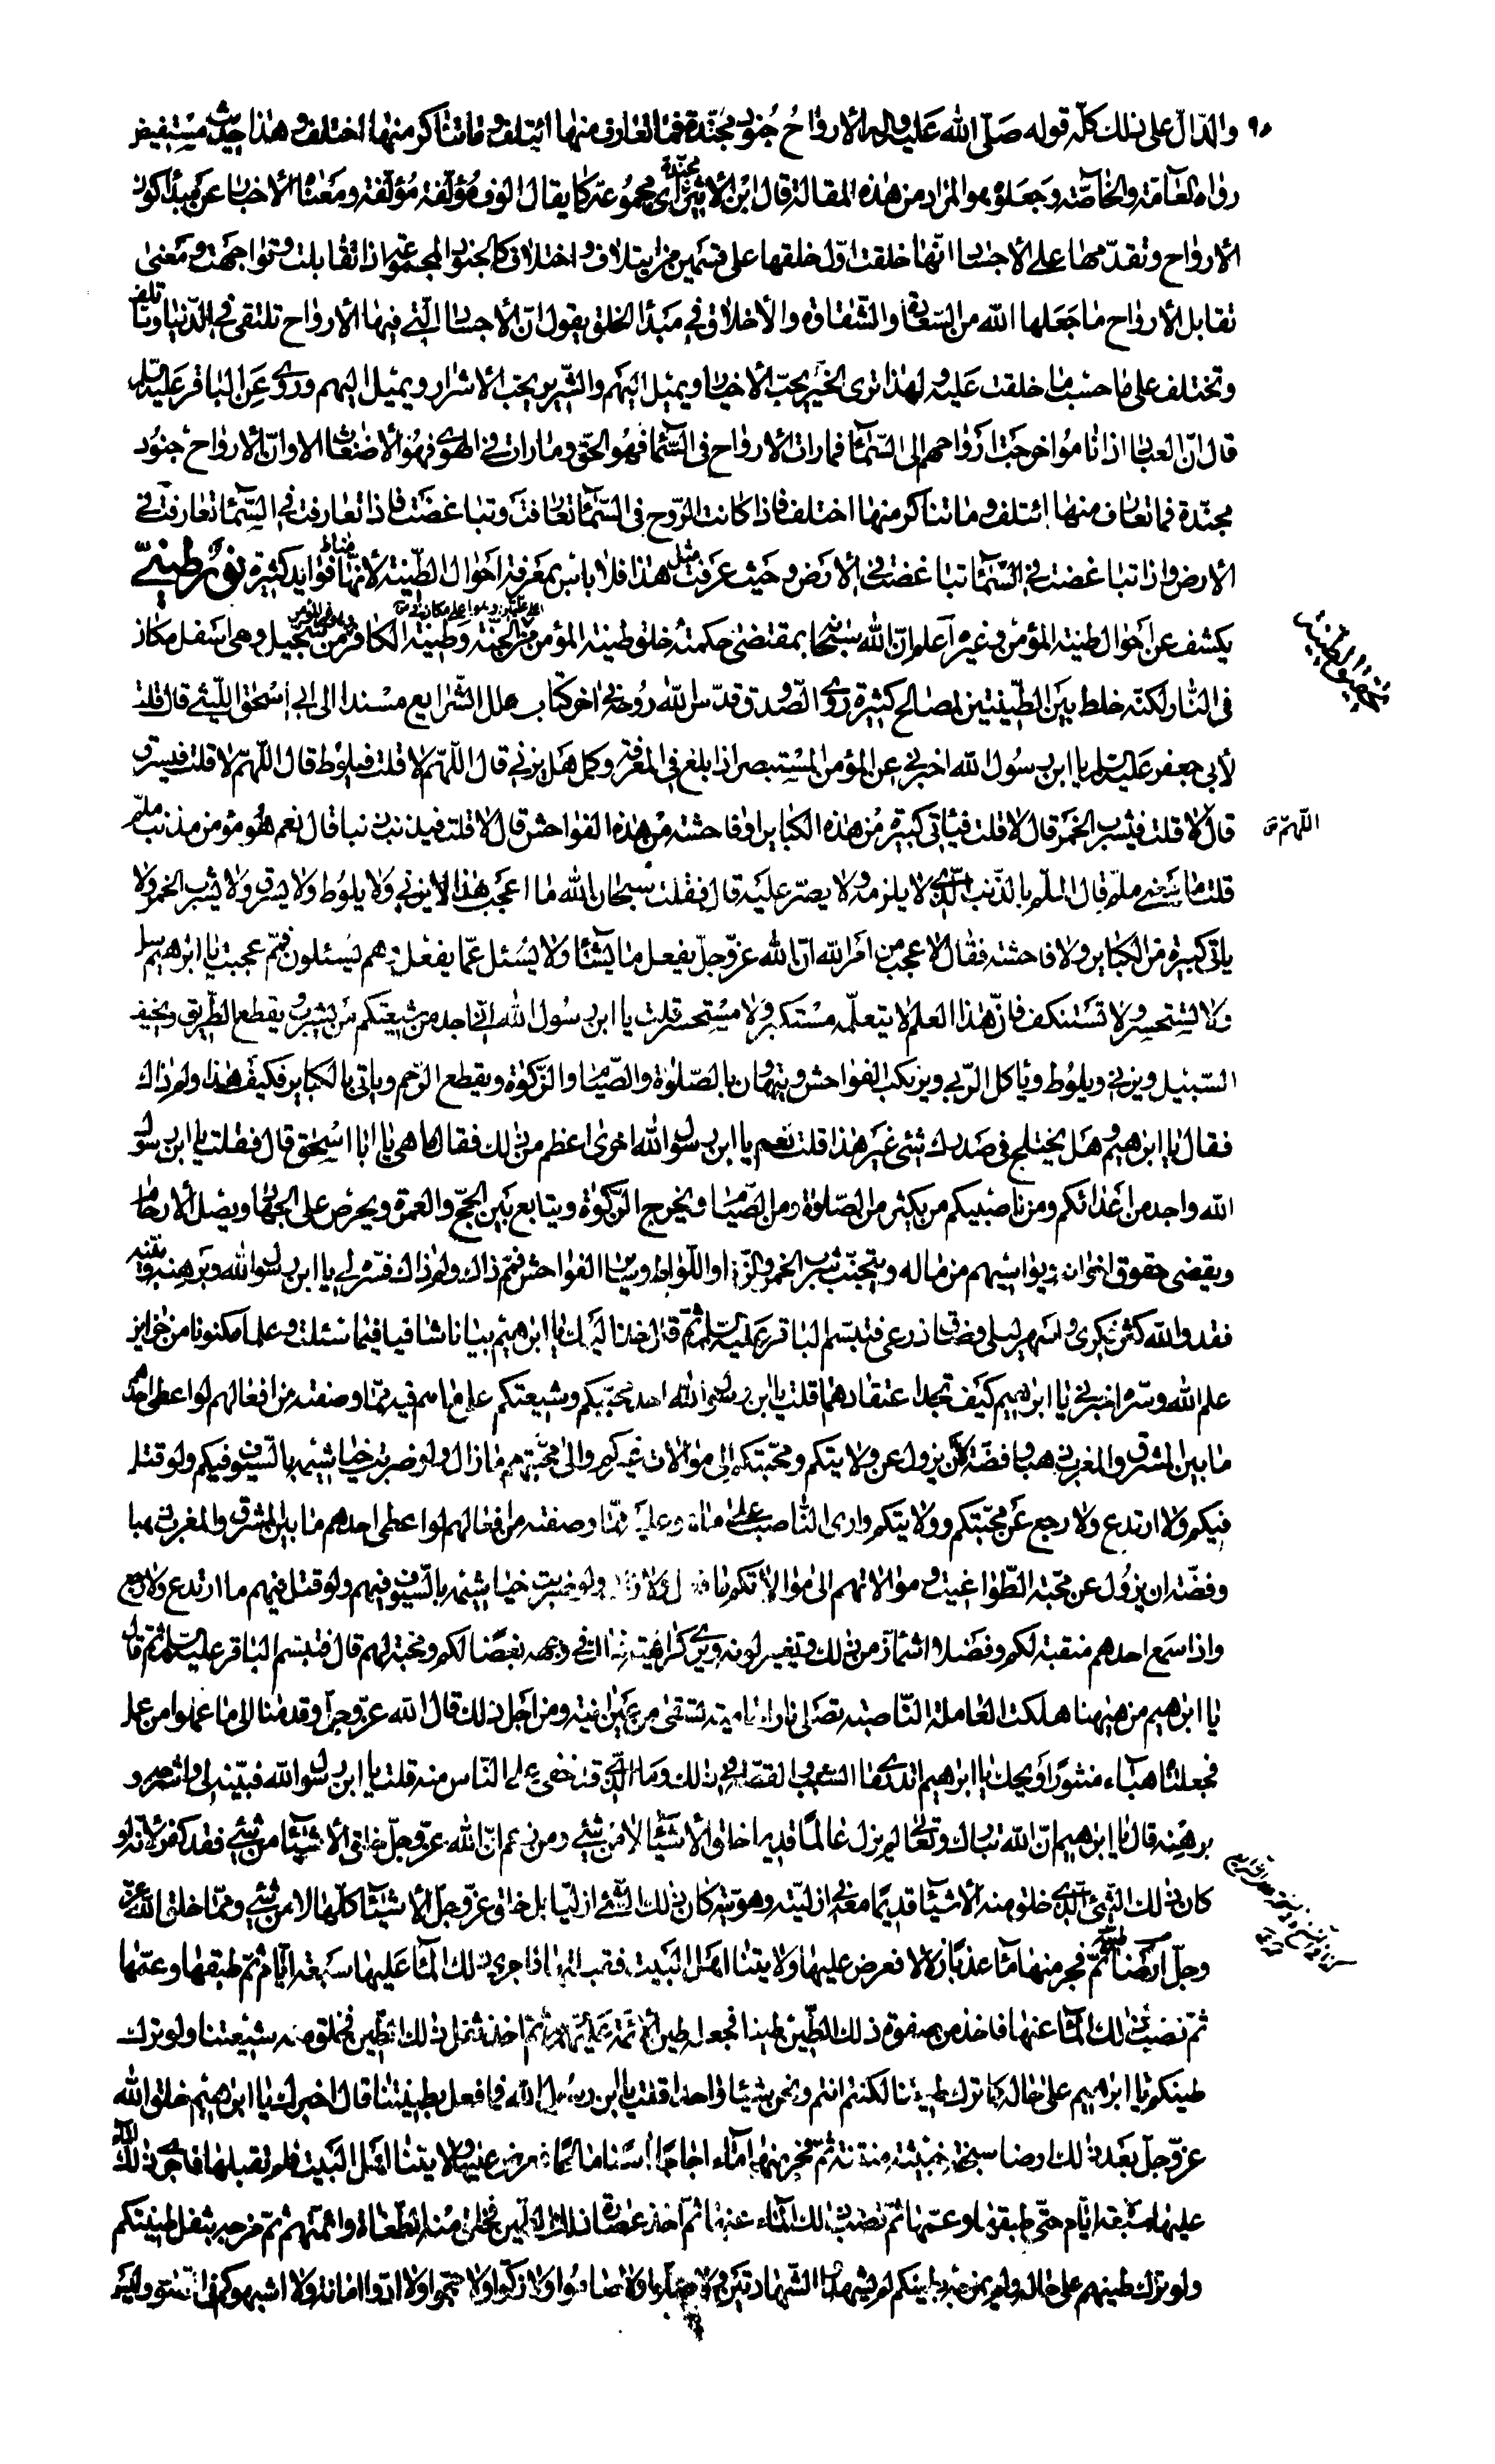 ٩٠ والدّال على ذلك كلّه قوله صلّى الله عليه واله الأرواح جنود مجنّدة فما تعارف منها ائتلف وما تناكر منها اختلف وهذا حديث مستفيض
رواه العامّة والخاصّة وجعلوه هو المراد من هذه المقالة قال ابن الأثير مجنّدة اى مجموعة كما يقال الوف مؤلّفة ومعناه الأخبار عن مبدأ كون
الأرواح وتقدّمها على الأجساد اى انّها خلقت اوّل خلقها على قسمين من ايتلاف واختلاف كالجنود المجموعة اذا تقابلت وتواجهت ومعنى
تقابل الأرواح ما جعلها الله من السّعادة والشّقاوة والأخلاق في مبدأ الخلق يقول انّ الأجساد الّتي فيها الأرواح تلتقى في الدّنيا وتأتلف
وتختلف على حسب ما خلقت عليه ولهذا ترى الخيّر يحبّ الأخيار ويميل اليهم والشّرير يحبّ الأشرار ويميل اليهم وروى عن الباقر عليه السّلم
قال انّ العباد اذا ناموا خرجت ارواحهم الى السّمآء فما رات الأرواح في السّمآء فهو الحقّ وما رات في الهوى فهو الأضغاث الا وانّ الأرواح جنود
مجنّدة فما تعارف منها ائتلف وما تناكر منها اختلف فاذا كانت الرّوح في السّمآء تعارفت وتباغضت فاذا تعارفت في السّمآء تعارفت في
الأرض واذا تباغضت في السّمآء تباغضت في الأرض وحيث عرفت مثل هذا فلا باس بمعرفة احوال الطّينة لأنّها مناط فوايد كثيرة نور طينيّ
يكشف عن احوال طينة المؤمن وغيره اعلم انّ الله سبحانه بمقتضى حكمته خلق طينة المؤمن من الجنّة وطينة الكافر من سجّيل وهي اسفل مكان
في النّار ولكنّه خلط بين الطّينتين لمصالح كثيرة روى الصّدوق قدّس الله روحه في اخر كتاب علل الشّرايع مسندا الى ابي اسحق اللّيثي قال قلت
لأبي جعفر عليه السلم يا ابن رسول الله اخبرني عن المؤمن المستبصر اذا بلغ في المعرفة وكمل هل يزني قال اللّهمّ لا قلت فيلوط قال اللّهمّ لا قلت فيسرق
قال لا قلت فيشرب الخمر قال لا قلت فيأتي كبيرة من هذه الكباير او فاحشة من هذه الفواحش قال لا قلت فيذنب ذنبا قال نعم هو مؤمن مذنب ملمّ
اللّهمّ
قلت ما معنى ملمّ قال الملمّ بالذّنب الّذي لا يلزمه ولا يصرّ عليه قال فقلت سبحان الله ما اعجب هذا لا يزني ولا يلوط ولا يسرق ولا يشرب الخمر ولا
ياتي كبيرة من الكباير ولا فاحشة فقال لا عجب من امر الله انّ الله عزّ وجلّ يفعل ما يشآء ولا يسئل عمّا يفعل وهم يسئلون فممّ عجبت يا ابرهيم سل
ولا تستحسر ولا تستنكف فانّ هذا العلم لا يتعلّمه مستكبر ولا مستحسر قلت يا ابن رسول الله انّي اجد من شيعتكم من يشرب ويقطع الطّريق ويخيف
السّبيل ويزني ويلوط وياكل الرّبى ويرتكب الفواحش ويتهاون بالصّلوة والصّيام والزّكوة ويقطع الرّحم وياتي بالكباير فكيف هذا ولم ذاك
فقال يا ابرهيم وهل يختلج في صدرك شيء غير هذا قلت نعم يا ابن رسول الله اخرى اعظم من ذلك فقال ما هي يا ابا اسحق قال فقلت يا ابن رسول
الله واجد من اعدائكم ومن ناصبيكم من يكثر من الصّلوة ومن الصّيام ويخرج الزّكوة ويتابع بين الحجّ والعمرة ويحرص على الجهاد ويصل الأرحام
ويقضي حقوق اخوانه ويواسيهم من ماله ويتجنّب شرب الخمر والزّنا واللّواط وساير الفواحش فممّ ذاك ولم ذاك فسّره لي يا ابن رسول الله وبرهنه وبيّنه
فقد والله كثر فكرى واسهر ليلى وضاق ذرعى فتبسّم الباقر عليه السلم ثمّ قال خذ اليك يا ابرهيم بيانا شافيا فيما سئلت وعلما مكنونا من خزاين
علم الله وسرّه اخبرني يا ابرهيم كيف تجد اعتقادهما قلت يا ابن رسول الله اجد محبّيكم وشيعتكم على ما هم فيه ممّا وصفته من افعالهم لو اعطى احدهم
ما بين المشرق والمغرب ذهبا وفضّة ان يزول عن ولايتكم ومحبّتكم الى موالاة غيركم والى محبّتهم ما زال ولو ضربت خياشيمه بالسّيوف فيكم ولو قتل
فيكم ولا ارتدع ولا رجع عن محبّتكم وولايتكم وارى النّاصب على ما هو عليه ممّا وصفته من افعالهم لو اعطى احدهم ما بين المشرق والمغرب ذهبا
وفضّة ان يزول عن محبّة الطّواغيت وموالاتهم الى موالاتكم ما فعل ولا زال ولو ضربت خياشيمه بالسّيوف فيهم ولو قتل فيهم ما ارتدع ولا رجع
واذا سمع احدهم منقبة لكم وفضلا اشمأزّ من ذلك وتغيّر لونه ورئي كراهية ذلك في وجهه بغضا لكم ومحبّة لهم قال فتبسّم الباقر عليه السلم ثمّ قال
يا ابرهيم من هيهنا هلكت العاملة النّاصبة تصلى نارا حامية تسقى من عين انية ومن اجل ذلك قال الله عزّ وجلّ وقدمنا الى ما عملوا من عمل
فجعلناه هبآء منثورا ويحك يا ابرهيم اتدرى ما السّبب والقصّة في ذلك وما الّذي قد خفى على النّاس منه قلت يا ابن رسول الله فبيّنه لي واشرحه و
برهنه قال يا ابرهيم انّ الله تبارك وتعالى لم يزل عالما قديما خلق الأشيآء لا من شيء ومن زعم انّ الله عزّ وجلّ خلق الأشيآء من شيء فقد كفر لأنّه لو
كان ذلك الشّيء الّذي خلق منه الأشيآء قديما معه في ازليّته وهويّته كان ذلك الشّيء ازليّا بل خلق عزّ وجلّ الأشيآء كلّها لا من شيء وممّا خلق الله عزّ
وجلّ ارضا طيّبة ثمّ فجر منها مآء عذبا زلالا فعرض عليها ولايتنا اهل البيت فقبلتها اذا جرى ذلك المآء عليها سبعة ايّام ثمّ طبقها وعمّها
ثمّ نضب ذلك المآء عنها فاخذ من صفوة ذلك الطّين طينا فجعله طين الأئمّة عليهم السلم ثمّ اخذ ثفل ذلك الطّين فخلق منه شيعتنا ولو ترك
طينكم يا ابرهيم على حاله كما ترك طينتنا لكنتم انتم ونحن شيئا واحدا قلت يا ابن رسول الله فما فعل بطينتنا قال اخبرك يا ابرهيم خلق الله
عزّ وجلّ بعد ذلك ارضا سبخة خبيثة منتنة ثمّ فجر منها مآء اجاجا اسنا مالحا فعرض عليها ولايتنا اهل البيت فلم تقبلها فاجرى ذلك المآء
عليها سبعة ايّام حتّى طبقها وعمّها ثمّ نضب ذلك المآء عنها ثمّ اخذ من ذلك الطّين فخلق منه الطّغاة وائمّتهم ثمّ مزجه بثفل طينتكم
ولو ترك طينهم على حاله ولم يمزجه بطينكم لم يشهدوا الشّهادتين ولا صلّوا ولا صاموا ولا زكّوا ولا حجّوا ولا ادّوا امانة ولا اشبهوكم في الصّور وليس